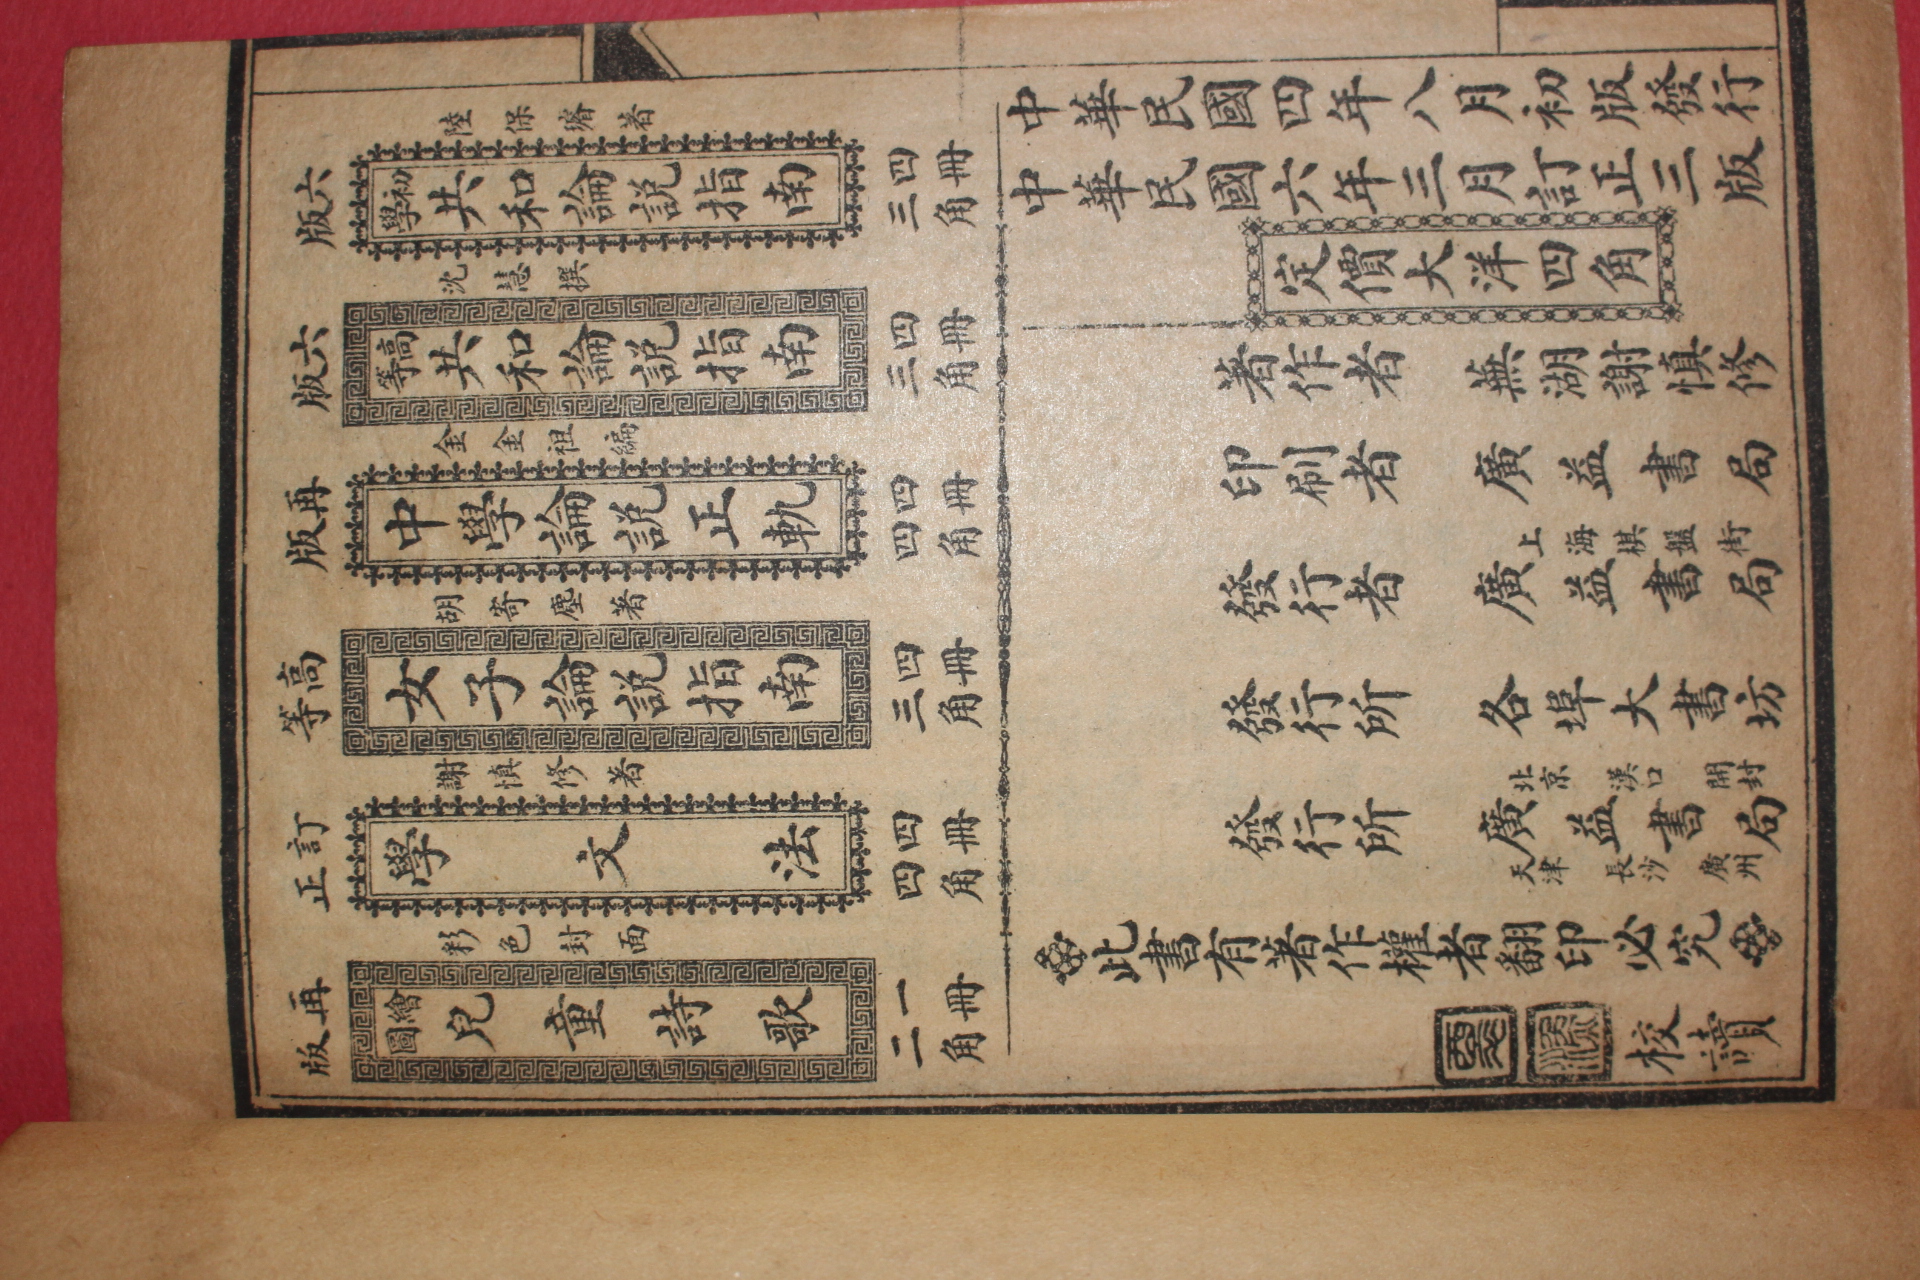 六版
陸保璿著
初學共和論說指南
四冊
三角
六版
沈慧撰
高等共和論說指南
四冊
三角
再版
金金祖編
中學論說正軌
四冊
四角
高等
胡寄塵著
女子論說指南
四冊
三角
訂正
謝慎修著
學文法
四冊
四角
再版
彩色封面
繪圖兒童詩歌
一冊
二角
中華民國四年八月初版發行
中華民國六年三月訂正三版
定價大洋四角
著作者 蕪湖謝慎修
印刷者 廣益書局
上海棋盤街
發行者 廣益書局
發行所 各埠大書坊
北京 漢口 開封
發行所 廣益書局
天津 長沙 廣州
此書有著作權者翻印必究
校讀